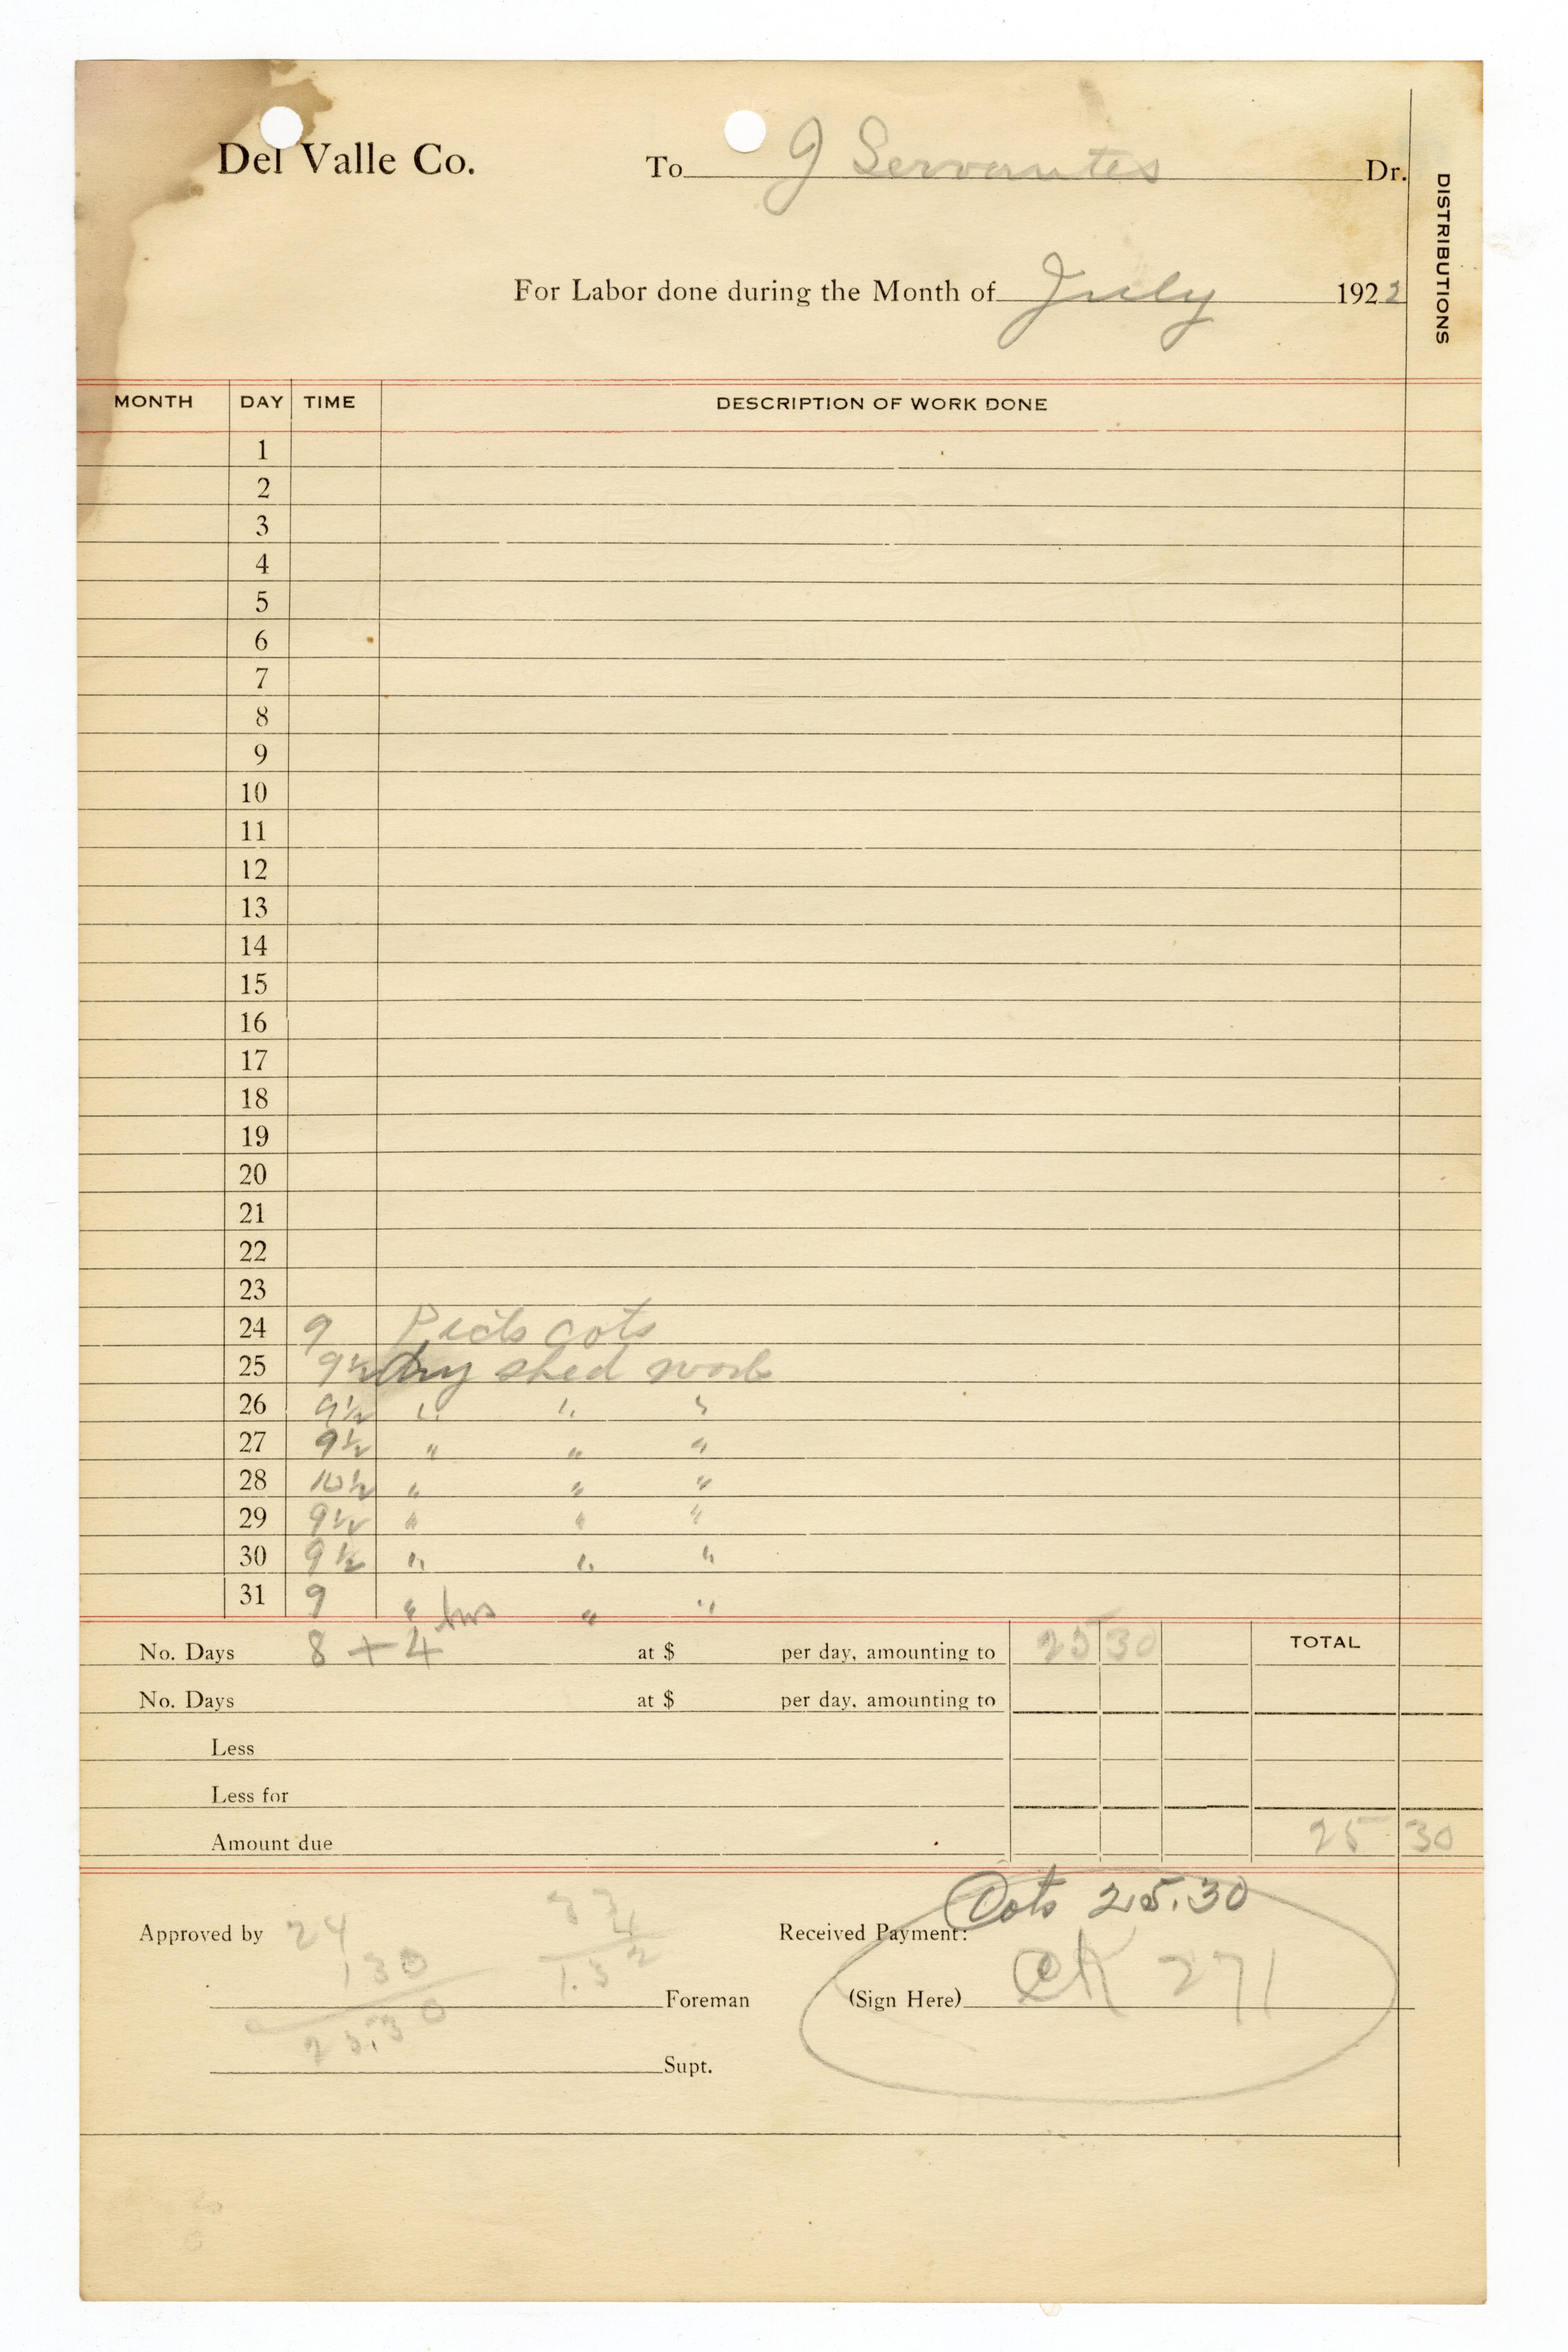 Del Valle Co. To J Servantes Dr.
DISTRIBUTIONS
For Labor done during the Month of July 1922
MONTH DAY TIME DESCRIPTION OF WORK DONE
1
2
3
4
5
6
7
8
9
10
11
12
13
14
15
16
17
18
19
20
21
22
23
24 9 cots
25 9½ Dry shed work
26 9½ " " "
27 9½ " " "
28 10½ " " "
29 9½ " " "
30 9½ " " "
31 9 " " "
No. Days 8 + 4 hrs at $ per day, amounting to 25 30 TOTAL
No. Days at $ per day, amounting to
Less
Less for
Amount due 25 30
Cots 25.30
Approved by 24 Received Payment:
130
1.32
Foreman (Sign Here) CK 271
25.30
Supt.